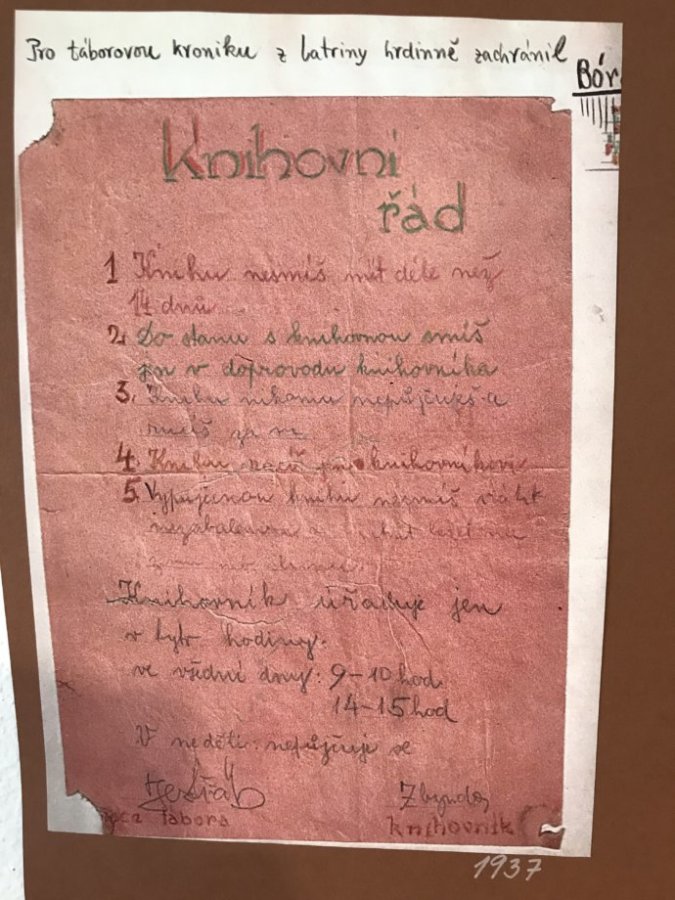 Pro táborovou kroniku z latriny hrdinně zachránil
Bór
Knihovní
řád
1 Knihu nesmíš mít déle než
14 dnů
2. Do stanu s knihovnou smíš
jen v doprovodu knihovníka
3. Knihu nikomu nepůjčuješ a
ručíš za ni
4. Knihu knihovníkovi
5. Vypůjčenou knihu nesmíš
nezabalenou a ležet
Knihovník úřaduje jen
v tyto hodiny:
ve všední dny: 9-10 hod
14-15 hod
V neděli nepůjčuje se
Jestřáb
Zbyndas
tábora
knihovník
1937